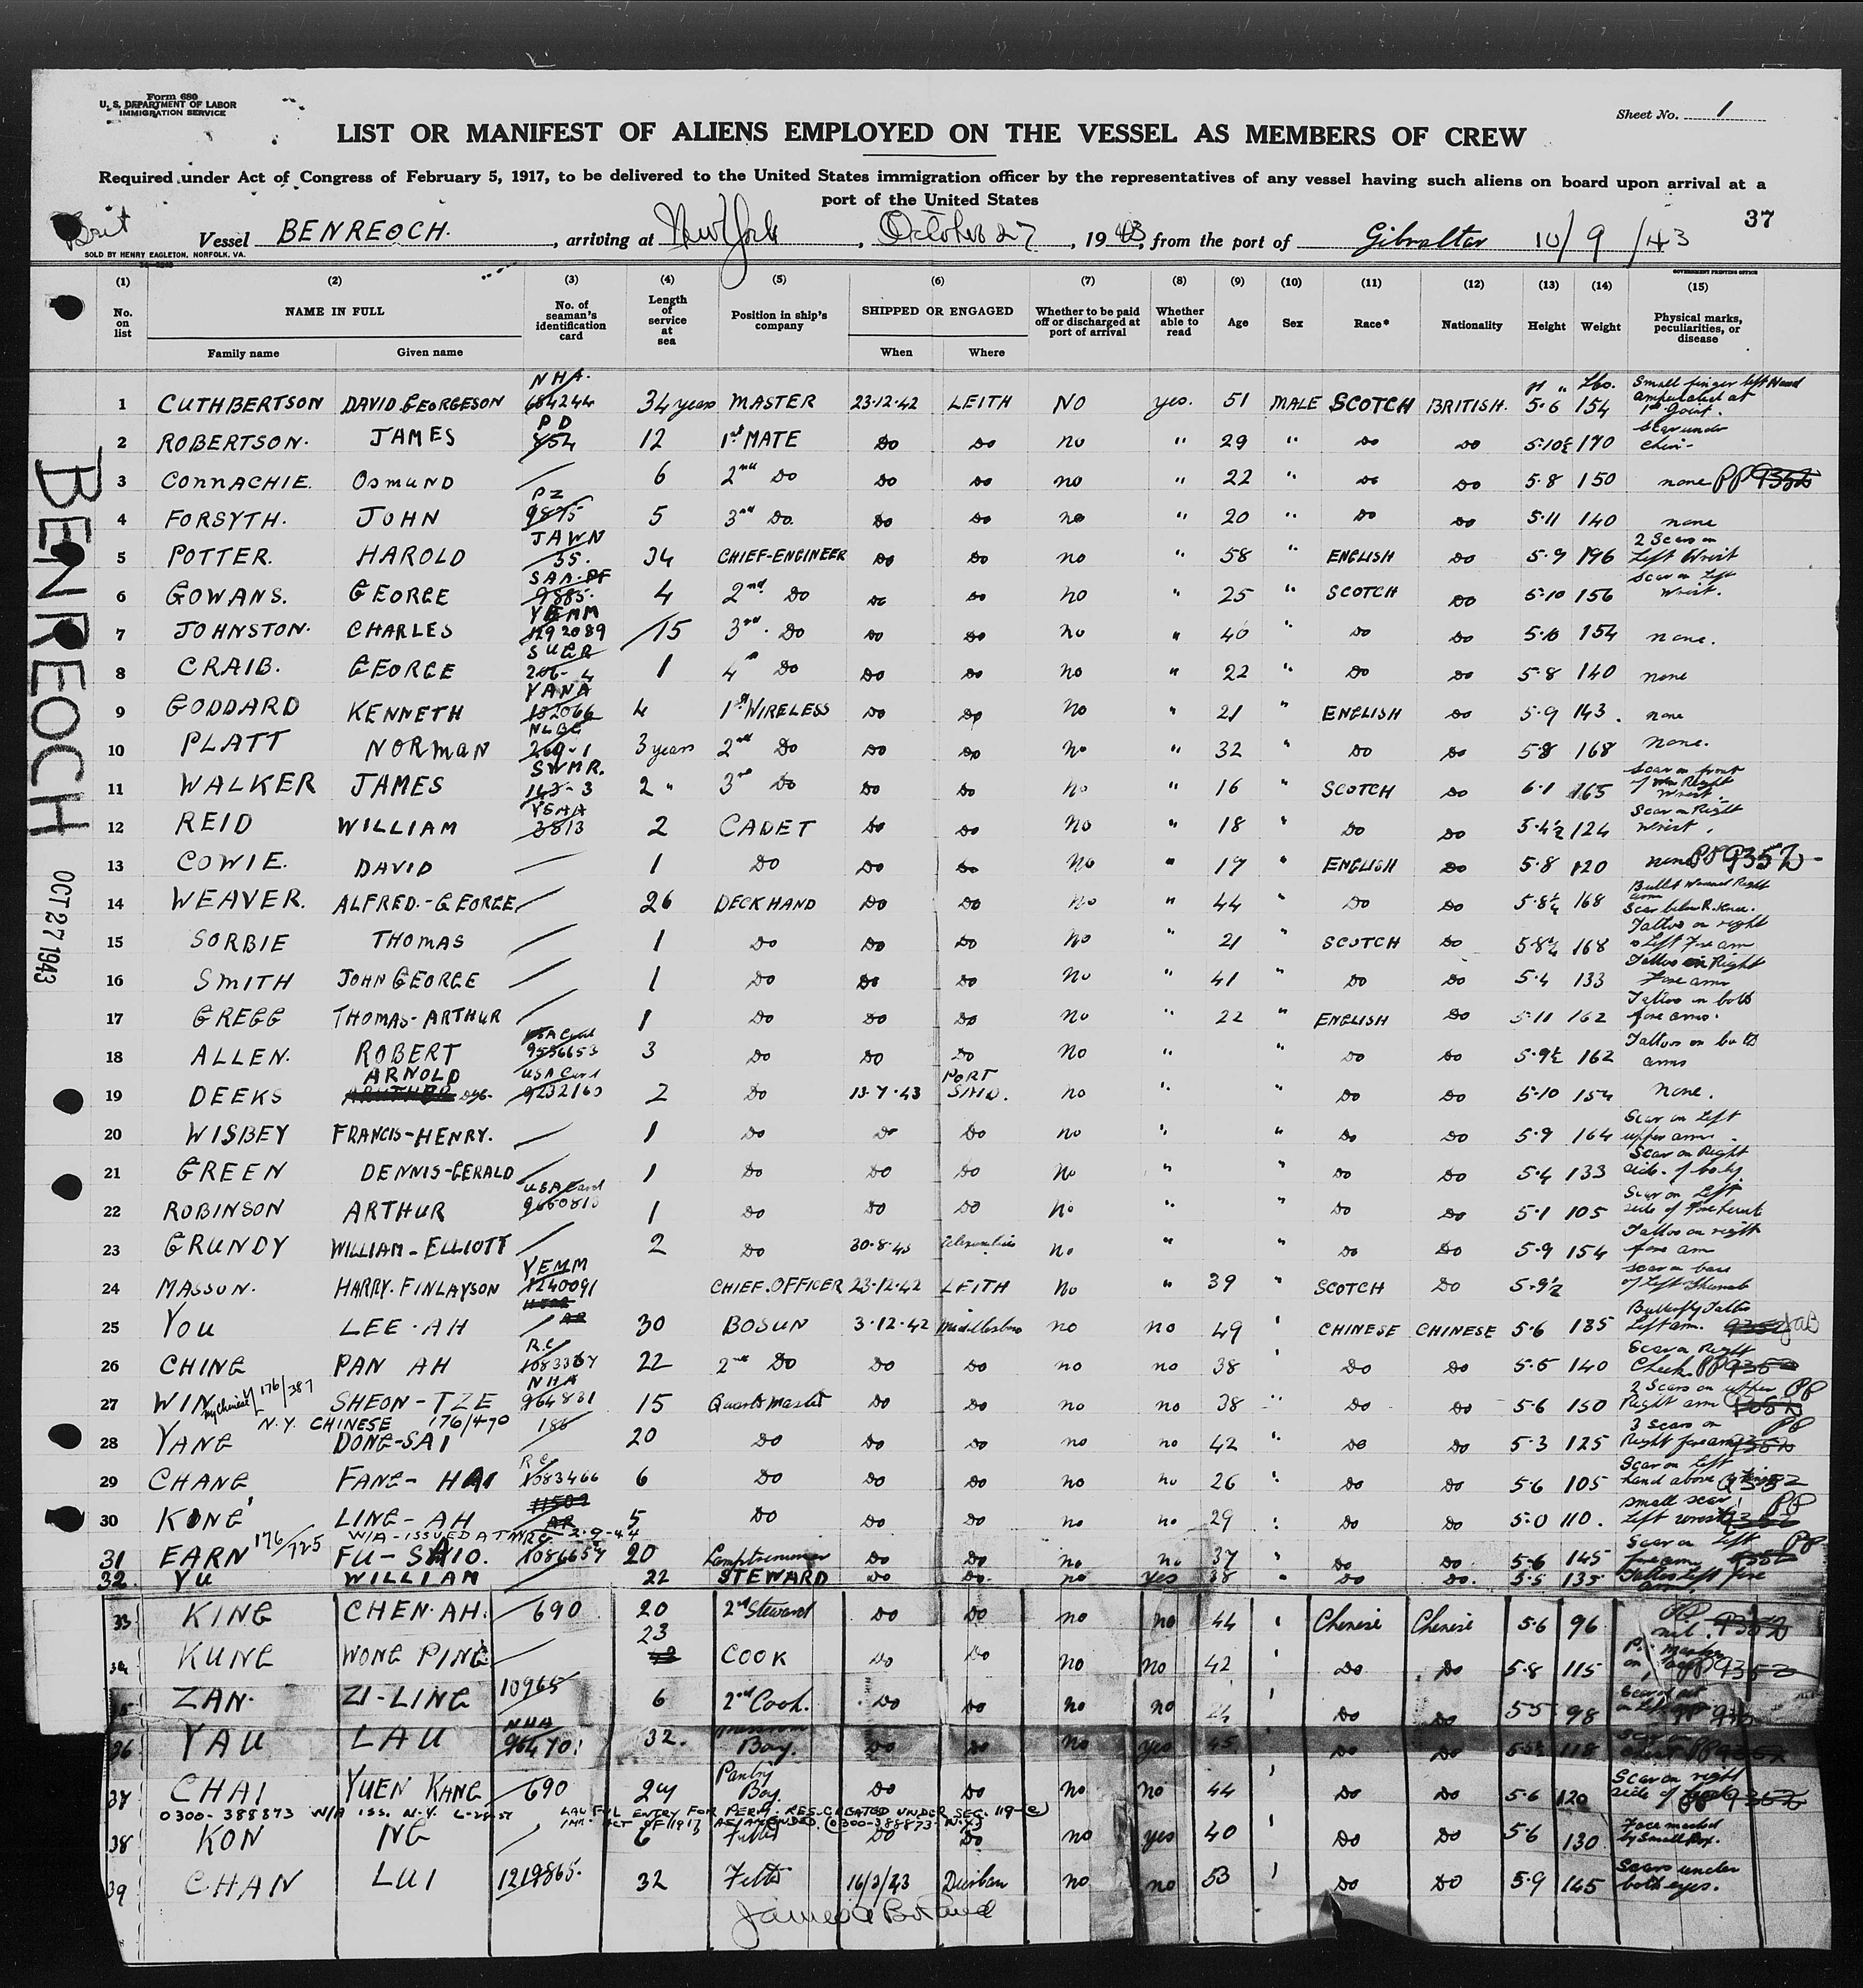 Form 680
U. S. DEPARTMENT OF LABOR
IMMIGRATION SERVICE
Sheet No. 1
LIST OR MANIFEST OF ALIENS EMPLOYED ON THE VESSEL AS MEMBERS OF CREW
Required under Act of Congress of February 5, 1917, to be delivered to the United States immigration officer by the representatives of any vessel having such aliens on board upon arrival at a
port of the United States
37
Brit Vessel BENREOCH. , arriving at New York , October 27 , 1943, from the port of Gibraltar 10/9/43
SOLD BY HENRY EAGLETON, NORFOLK, VA.
GOVERNMENT PRINTING OFFICE
(1) (2) (3) (4) (5) (6) (7) (8) (9) (10) (11) (12) (13) (14) (15)
No. on list NAME IN FULL No. of seaman's identification card Length of service at sea Position in ship's company SHIPPED OR ENGAGED Whether to be paid off or discharged at port of arrival Whether able to read Age Sex Race* Nationality Height Weight Physical marks, peculiarities, or disease
Family name Given name When Where
1 CUTHBERTSON DAVID GEORGESON NHA. 684244 34 years MASTER 23·12·42 LEITH NO yes. 51 MALE SCOTCH BRITISH. 5·6 154 Lbs. Small finger left Hand amputated at 1st Joint.
2 ROBERTSON. JAMES PD 454 12 1st MATE Do Do no " 29 " Do Do 5·10½ 170 Scar under chin-
3 CONNACHIE. OSMUND 6 2nd Do Do Do no " 22 " Do Do 5·8 150 none PP 9352
4 FORSYTH. JOHN PZ 9875 5 3rd Do. Do Do no " 20 " Do Do 5·11 140 none
5 POTTER. HAROLD JAWN 35. 34 CHIEF-ENGINEER Do Do no " 58 " ENGLISH Do 5·9 196 2 Scars on Left Wrist
6 GOWANS. GEORGE SAA·PF 9885· 4 2nd. Do Do Do no " 25 " SCOTCH Do 5·10 156 Scar on Left wrist.
7 JOHNSTON. CHARLES YEMM 1292089 15 3rd. Do Do Do no " 40 " Do Do 5·10 154 none.
8 CRAIB. GEORGE SUGR 206-4 1 4th Do Do Do no " 22 " Do Do 5·8 140 none
9 GODDARD KENNETH YANA 132066 4 1st WIRELESS Do Do No " 21 " ENGLISH Do 5·9 143. none
10 PLATT NORMAN 269-1 3 years 2nd Do Do Do No " 32 " Do Do 5·8 168 none.
11 WALKER JAMES SWMR. 143-3 2 " 3rd Do Do Do no " 16 " SCOTCH Do 6·1 165 Scar on front of Right wrist.
12 REID WILLIAM 3813 2 CADET Do Do No " 18 " Do Do 5·4½ 124 Scar on Right wrist.
13 COWIE. DAVID 1 Do Do Do No " 19 " ENGLISH Do 5·8 120 none PP 9352 -
14 WEAVER. ALFRED.-GEORGE 26 DECKHAND Do Do No " 44 " Do Do 5·8½ 168 Bullet Wound Right arm Scar below R. Knee.
15 SORBIE THOMAS 1 Do Do Do No " 21 " SCOTCH Do 5·8½ 168 Tattoo on right & Left Fore arm
16 SMITH JOHN GEORGE 1 Do Do Do No " 41 " Do Do 5·4 133 Tattoo on Right Fore arm
17 GREGG THOMAS-ARTHUR 1 Do Do Do No " 22 " ENGLISH Do 5·11 162 Tattoo on both fore arms.
18 ALLEN. ROBERT USA Card 9556653 3 Do Do Do No " " Do Do 5·9½ 162 Tattoos on both arms
19 DEEKS ARNOLD USA Card 9232160 2 Do 13·7·43 PORT SAID. no " " Do Do 5·10 154 none.
20 WISBEY FRANCIS-HENRY. 1 Do Do Do no " " Do Do 5·9 164 Scar on Left upper arm.
21 GREEN DENNIS-GERALD 1 Do Do Do No " " Do Do 5·4 133 Scar on Right side of body.
22 ROBINSON ARTHUR USA Card 9660813 1 Do Do Do no " " Do Do 5·1 105 Scar on Left side of Forehead
23 GRUNDY WILLIAM-ELLIOTT 2 Do 30·8·43 Alexandria no " " Do Do 5·9 154 Tattoo on right fore arm
24 MASSON. HARRY. FINLAYSON YEMM 1240091 CHIEF.OFFICER 23·12·42 LEITH No " 39 " SCOTCH Do 5-9½ Scar on base of Left Thumb
25 YOU LEE·AH 30 BOSUN 3·12·42 Middlesbro no no 49 ' CHINESE CHINESE 5·6 135 Butterfly Tattoo Left arm. 9352 JaB
26 CHING PAN AH R.C/ 1083367 22 2nd Do Do Do no no 38 ' Do Do 5·5 140 Scar on Right Cheek. PP 9352
27 WIN NY Chinese 176/387 SHEON-TZE NHA 964831 15 Quartermaster Do Do no no 38 " Do Do 5·6 150 2 Scars on upper Right arm PP 9352
N.Y. CHINESE 176/470
28 YANG DONG-SAI 186 20 Do Do Do no no 42 " Do Do 5·3 125 3 Scars on Right forearm PP 9352
29 CHANG FANG-HAI RC/ 1083466 6 Do Do Do no no 26 " Do Do 5·6 105 Scar on Left hand above 9352
30 KONG LING-AH 11502 AR 5 Do Do Do no no 29 ' Do Do 5·0 110. small scar Left wrist PP 9352
W/A-ISSUED AT NRG 2-9-44
31 EARN 176/725 FU-SAIO. 1086657 20 Lamptrimmer Do Do no no 37 ' Do Do 5·6 145 Scar on Left forearm PP 9352
32. YU WILLIAM 22 STEWARD Do Do. no yes 38 " Do Do. 5·5 135 Tattoo Left fore arm
33 KING CHEN·AH. 690 20 2nd Steward Do Do no no 44 ' Chinese Chinese 5·6 96 PP nil. 9352
34 KUNG WONG PING 23 COOK Do Do no no 42 ' Do Do 5·8 115 PP 9352
ZAN. ZI-LING 10965 6 2nd Cook. Do Do no no ' Do Do 5·5 98
36 YAU LAU NHA 32. Boy. Do Do no yes 45 Do Do 118 PP 9352
37 CHAI YUEN KANG 690 Pantry Boy. Do Do no no 44 ' Do Do 5·6 120 Scar on right side of PP 9352
0300-388873 W/A ISS. N.Y. LAWFUL ENTRY FOR PERM. RES. CREATED UNDER SEC. 119-(c)
IMM. ACT OF 1917, AS AMENDED. (0300-388873-N.Y.)
38 KON NG 6 Fitter Do Do no yes 40 ' Do Do 5·6 130 Face marked by Small Pox.
39 CHAN LUI 1219865. 32 Fitter 16/3/43 Durban no no 53 ' Do Do 5·9 145 Scars under both eyes.
BENREOCH
OCT 27 1943